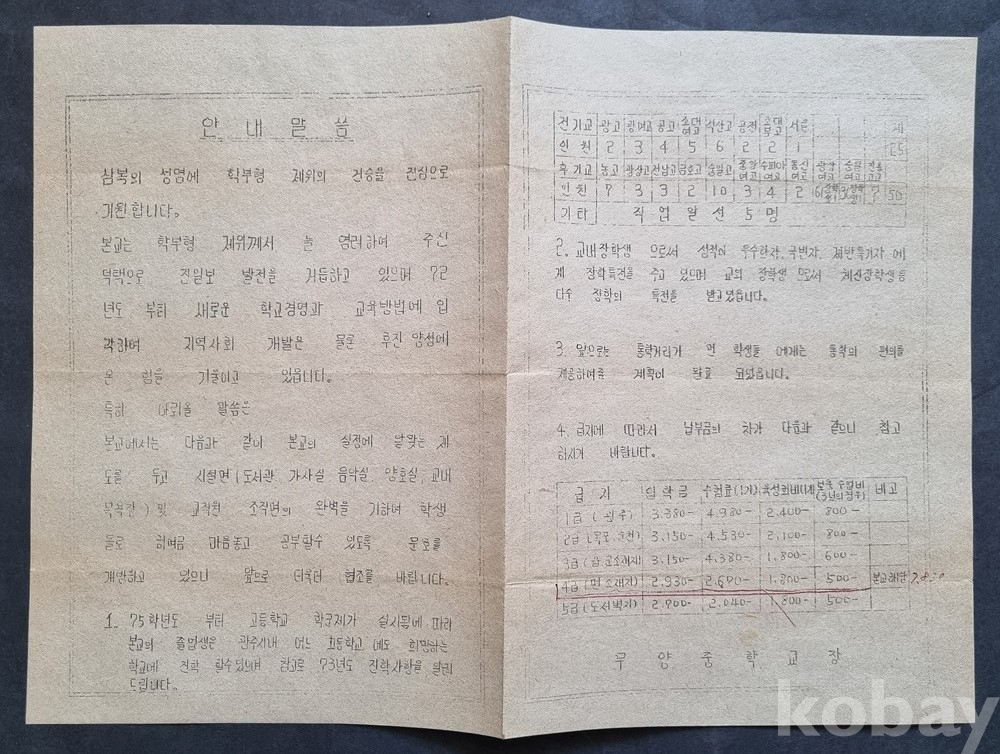 안 내 말 씀
삼복의 성염에 학부형 제위의 건승을 진심으로
기원합니다.
본교는 학부형 제위께서 늘 염려하여 주신
덕택으로 진일보 발전을 거듭하고 있으며 72
년도 부터 새로운 학교경영과 교육방법에 입
각하여 지역사회 개발은 물론 후진양성에
온 힘을 기울이고 있읍니다.
특히 아뢰올 말씀은
본교에서는 다음과 같이 본교의 실정에 알맞는 제
도를 두고 시설면(도서관 가사실 음악실 양호실, 교내
) 및 교직원 조직면의 완벽을 기하여 학생
들로 하여금 마음놓고 공부할수 있도록 문호를
개방하고 있으니 앞으로 더욱더 협조를 바랍니다.
1. 75학년도 부터 고등학교 학구제가 실시됨에 따라
본교의 졸업생은 광주시내 어느 고등학교에도 희망하는
학교에 진학 할수있으며 참고로 73년도 진학사항을 알려
드립니다.
전기교 광고 광여고 공고 조대여고 숙산고 공전 조대부고 서울 계
인원 2 3 4 5 6 2 2 1 25
후기교 농고 광상고 전남고 금호고 숭일고 중앙여고 수피아여고 동신여고
인원 7 3 3 2 10 3 4 2 50
기타 직업알선 5명
2. 교내장학생 으로써 성적이 우수한자, 극빈자, 제반특기자 에
게 장학특전을 주고 있으며 교외 장학생 으로서 체신장학생등
다수 장학의 특전을 받고있읍니다.
3. 앞으로는 통학거리가 먼 학생들 에게는 통학의 편의를
제공하여줄 계획이 완료 되었읍니다.
4. 급지에 따라서 납부금의 차가 다음과 같으니 참고
하시기 바랍니다.
급지 입학금 수험료(1기) 육성회비(1기) 보충수업비 비고
1급 (광주) 3.380- 4.980- 2.400- 800-
2급 (목포, 순천) 3.150- 4.530- 2.100- 800-
3급 (읍 군소재지) 3.150- 4.380- 1.800- 600-
4급 (면 소재지) 2.930- 2.600- 1.800- 500- 본교해당 7.830
5급 (도서벽지) 2.700- 2.040- 1.800- 500-
무 양 중 학 교 장
kobay